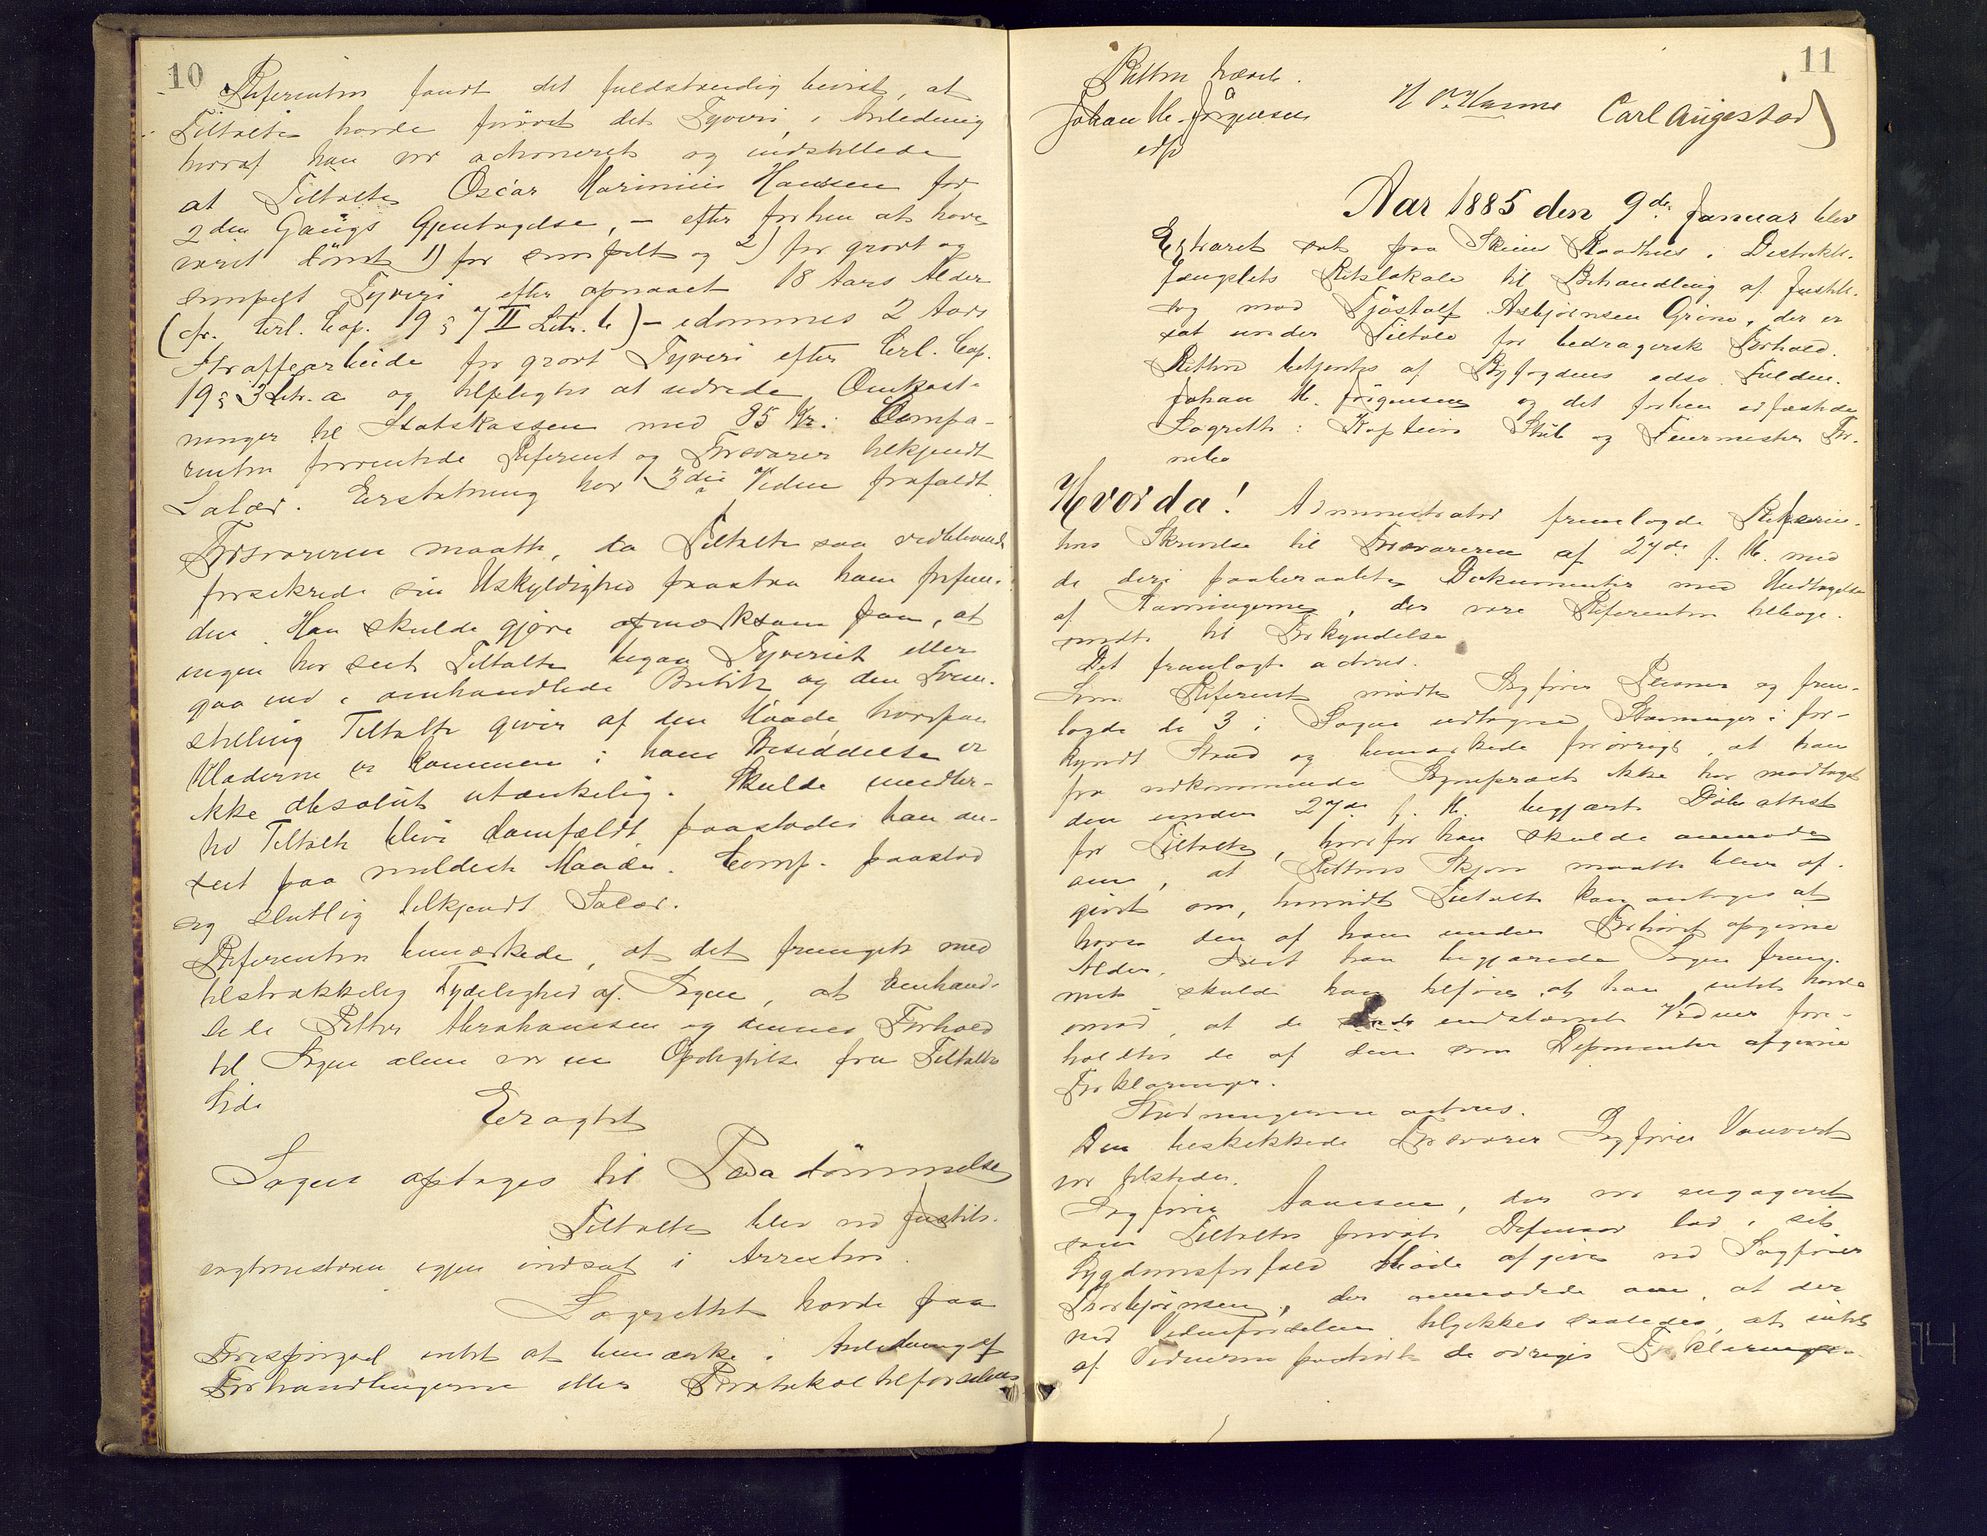 10
Referenten fandt det fuldstændig bevist, at
Tiltalte havde forøvet det Tyveri, i Anledning
hvoraf han var actioneret og indstillede
at Tiltalte Oscar Marinius Hansen for
2den Gangs Gjentagelse, – efter forhen at have
været dømt 1) for simpelt og 2) for grovt og
simpelt Tyveri efter opnaaet 18 Aars Alder
(cfr. Crl. Cap. 19 § 7 II Litr. b) – idømmes 2 Aars
Straffearbeide for grovt Tyveri efter Crl. Cap.
19 § 3 Litr. a og tilpligtes at udrede Omkost-
ninger til Statskassen med 85 Kr. Compa-
renten forventede Referent og Forsvarer tilkjendt
Salær. Erstatning har 3die Vidne frafaldt.
Forsvareren maatte, da Tiltalte saa vedblivende
forsikrede sin Uskyldighed paastaa ham frifun-
den. Han skulde gjøre opmærksom paa, at
ingen har seet Tiltalte begaa Tyveriet eller
gaa ind i omhandlede Butik og den Frem-
stilling Tiltalte giver af den Maade hvorpaa
Klæderne er kommen i hans Besiddelse er
ikke absolut utænkelig. Skulde imidler-
tid Tiltalte blive domfældt paastodes han an-
seet paa mildeste Maade. Comp. paastod
sig sluttelig tilkjendt Salær.
Referenten bemærkede, at det fremgik med
tilstrækkelig Tydelighed af Sagen, at Omhand-
lede Petter Abrahamsen og dennes Forhold
til Sagen alene var en Opdigtelse fra Tiltaltes
Side
Eragtet
Sagen optages til Paadømmelse
Tiltalte blev ved Justits-
vagtmesteren igjen indsat i Arresten.
Lagrettet havde paa
Forespørgsel intet at bemærke i Anledning af
Forhandlingerne eller Protokoltilførselen
11
Retten hævet.
Johan M. Jørgensen
edsv
Carl Augestad
Aar 1885 den 9de Januar blev
Extraret sat paa Skiens Raadhus i Distrikts-
fængslets Retslokale til Behandling af Justits-
sag mod Tjøstolf Asbjørnsen Grini, der er
sat under Tiltale for bedragersk Forhold.
Retten betjentes af Byfogdens edsv. Fuldm.
Johan M. Jørgensen og det forhen edfæstede
Lagrette: Kaptein Stub og Feiermester
Hvorda! Administrator fremlagde Referen-
tens Skrivelse til Forsvareren af 27de f. M. med
de deri paaberaabte Dokumenter med Undtagelse
af Stævningerne, der vare Referenten tilbage-
sendte til Forkyndelse
Det fremlagte acteres.
Som Referent mødte Sagfører og frem-
lagde de 3 i Sagen udtagne Stævninger i for-
kyndt Stand og bemærkede forøvrigt, at han
fra vedkommende Sognepræst ikke har modtaget
den under 27de f. M. begjærte Døbeattest
for Tiltalte, hvorfor han skulde anmode
om, at Rettens Skjøn maatte blive af-
givet om, hvorvidt Tiltalte kan antages at
have den af ham under Forhøret opgivne
Alder. Idet han begjærede Sagen frem-
met skulde han tilføie, at han intet havde
imod, at de indstævnte Vidner fore-
holdtes de af dem som Deponenter afgivne
Forklaringer.
Stævningerne acteres.
Den beskikkede Forsvarer Sagfører Vauvert
var tilstede.
Sagfører Aanesen, der var engageret
som Tiltaltes private Defensor lod i sit
Sygdomsforfald Møde afgive ved Sagfører
Thorbjørnsen, der anmodede om, at der
ved Vidneførselen saaledes, at intet
af Vidnerne de øvriges Forklaringer